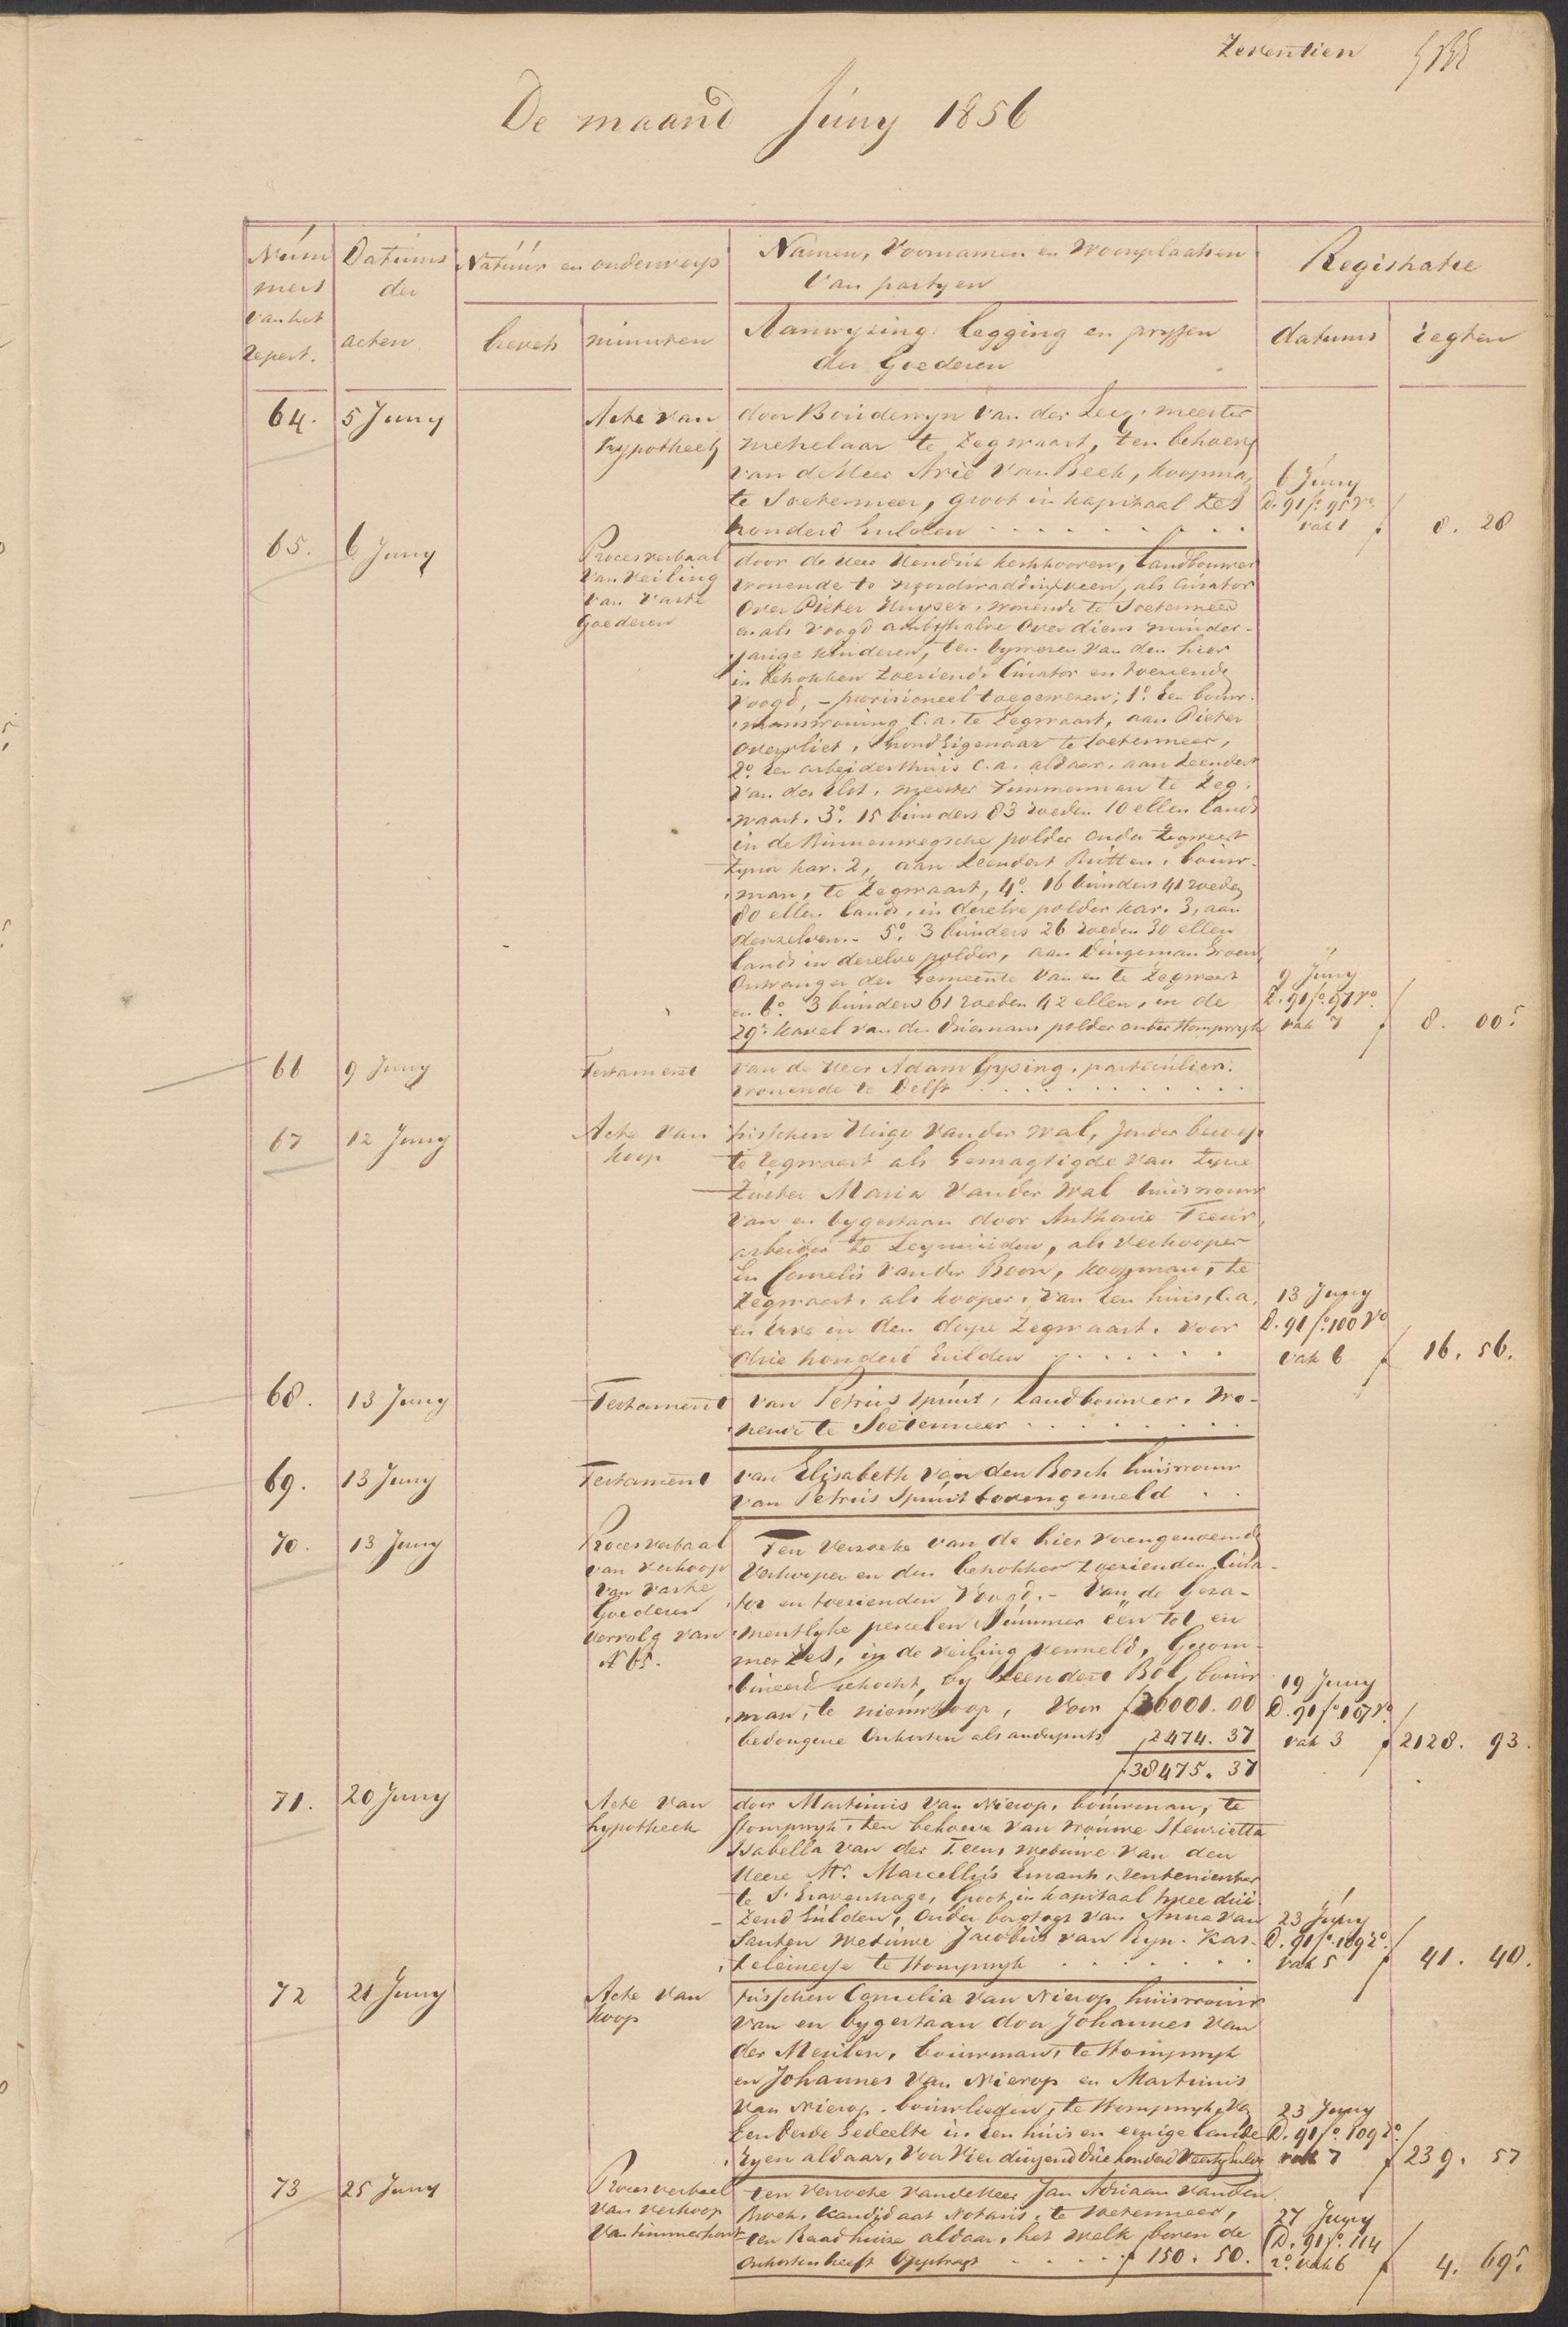 Zeventien
De maand Juny 1856
Num
mers
van het
repert.
Datums
der
acten
Natuur en onderwerp
brevets
minuten
Namen, Voornamen en Woonplaatsen
Van partyen
Aanwyzing legging en pryssen
der Goederen
Registratie
datums
regten
64.
5 Juny
Acte van
hypotheek
door Boudewyn van der Leeg, meester
metselaar te Zegwaart, ten behoeve
van de Heer Arie van Beek, koopman
te Soetermeer, groot in kapitaal zes
honderd Gulden
6 Juny
D. 91 fo. 95 Vo.
vak 1
f 8. 28
65.
6 Juny
Procesverbaal
van veiling
van vaste
goederen
door de Heer Hendrik Kerkhooren, Landbouwer
wonende te Noordwaddinxveen, als Curator
over Pieter Kuyper, wonende te Soetermeer
en als voogd ambtshalve over diens minder-
jarige kinderen, ten bywezen van den hier
in betrokken toeziende Curator en toeziende
voogd, - provisioneel toegewezen; 1o. Een bouw-
manswoning c.a. te Zegwaart, aan Pieter
Overvliet, Grond Eigenaar te Soetermeer,
2o. Een arbeidershuis c.a. aldaar, aan Leendert
van der Elst, meester Timmerman te Zeg-
waart. 3o. 15 bunders 83 roeden 10 ellen land
in de Binnenwegsche polder onder Zegwaart
Zynde kav. 2, aan Leendert Rutten, bouw-
man, te Zegwaart, 4o. 16 bunders 41 roeden
80 ellen land, in dezelve polder kav. 3, aan
denzelven. - 5o. 3 bunders 26 roeden 30 ellen
land in dezelve polder, aan Dingeman Groen
Ontvanger der Gemeente van en te Zegwaart
en 6o. 3 bunders 61 roeden 42 ellen, in de
29e. kavel van den Driemans polder onder Stompwyk
9 Juny
D. 91 fo. 97 ro.
vak 7
f 8. 00 5
66
9 Juny
Testament
van de Heer Adam Gysing, particulier,
wonende te Delft
67
12 Juny
Acte van
koop
tusschen Huige van der Wal, zonder beroep
te Zegwaart als Gemagtigde van Zyne
Zuster Maria van der Wal huisvrouw
van en bygestaan door Anthonie
arbeider te Leymuiden, als verkooper
En Cornelis van der Boon, koopman, te
Zegwaart, als kooper, van Een huis, c.a.
en erve in den dorpe Zegwaart. voor
drie honderd Gulden
13 Juny
D. 91 fo. 100 Vo
vak 6
f 16. 56.
68.
13 Juny
Testament
van Petrus Spuut, Landbouwer, wo-
nende te Soetermeer
69.
13 Juny
Testament
van Elisabeth van den Bosch huisvrouw
van Petrus Spuut bovengemeld
70.
13 Juny
Procesverbaal
van verkoop
van vaste
Goederen
vervolg van
N 65.
Ten verzoeke van de hier voorengenoemde
Verkooper en den betrokken toezienden Cura-
tor en toezienden Voogd. - Van de Geza-
mentlyke percelen Nummer een tot en
met zes, in de veiling vermeld, Gecom-
bineerd verkocht, by Leendert Bol, bouw
man, te nieuwkoop, voor f 36001. 00
bedongene Onkosten als anderzints 2474. 37
f 38475. 37
19 Juny
D. 91 fo. 107 Vo.
vak 3
f 2128. 93.
71.
20 Juny
Acte van
hypotheek
door Martinus van Nierop, bouwman, te
Stompwyk, ten behoeve van Vrouwe Henrietta
Isabella van der Feen, weduwe van den
Heere Mr. Marcellus Emants, rentenierster
te S'Gravenhage, Groot in kapitaal twee dui-
zend Gulden, onder borgtogt van Anna van
Santen weduwe Jacobus van Ryn, Kas-
teleinesse te Stompwyk
23 Juny
D. 91 fo. 109 ro.
vak 5
f 41. 40.
72
21 Juny
Acte van
koop
tusschen Cornelia van Nierop, huisvrouw
van en bygestaan door Johannes van
der Meulen, bouwman, te Stompwyk
en Johannes van Nierop en Martinus
van Nierop, bouwlieden, te Stompwyk, van
Een derde Gedeelte in Een huis en eenige landen
Eyen aldaar, voor Vier duizend drie honderd veertig Gulden
23 Juny
D. 91 fo. 109 ro.
vak 7
f 239. 57
73
25 Juny
Procesverbaal
van verkoop
van timmerhout
ten verzoeke van de Heer Jan Adriaan van den
Broek, kandidaat Notaris, te Soetermeer,
ten Raadhuize aldaar, het welk boven de
Onkosten heeft Opgebragt f 150. 50.
27 Juny
D. 91 fo. 114
ro. vak 6
f 4. 69 5